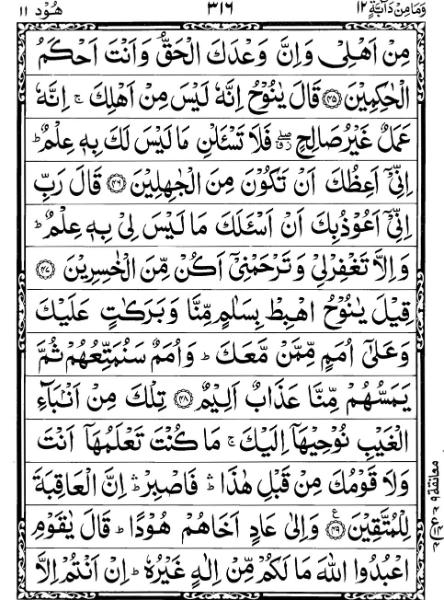 وَمَا مِنْ دَآبَّةٍ ١٢ ٣١٦ هُوْد ١١
مِنْ اَهْلِىْ وَاِنَّ وَعْدَكَ الْحَقُّ وَاَنْتَ اَحْكَمُ
الْحٰكِمِيْنَ ﴿٤٥﴾ قَالَ يٰنُوْحُ اِنَّهٗ لَيْسَ مِنْ اَهْلِكَ ۚ اِنَّهٗ
عَمَلٌ غَيْرُ صَالِحٍ ۖ فَلَا تَسْـَٔلْنِ مَا لَيْسَ لَكَ بِهٖ عِلْمٌ ؕ
اِنِّىْۤ اَعِظُكَ اَنْ تَكُوْنَ مِنَ الْجٰهِلِيْنَ ﴿٤٦﴾ قَالَ رَبِّ
اِنِّىْۤ اَعُوْذُ بِكَ اَنْ اَسْـَٔلَكَ مَا لَيْسَ لِىْ بِهٖ عِلْمٌ ؕ
وَاِلَّا تَغْفِرْ لِىْ وَتَرْحَمْنِىْۤ اَكُنْ مِّنَ الْخٰسِرِيْنَ ﴿٤٧﴾
قِيْلَ يٰنُوْحُ اهْبِطْ بِسَلٰمٍ مِّنَّا وَبَرَكٰتٍ عَلَيْكَ
وَعَلٰٓى اُمَمٍ مِّمَّنْ مَّعَكَ ؕ وَاُمَمٌ سَنُمَتِّعُهُمْ ثُمَّ
يَمَسُّهُمْ مِّنَّا عَذَابٌ اَلِيْمٌ ﴿٤٨﴾ تِلْكَ مِنْ اَنْۢبَآءِ
الْغَيْبِ نُوْحِيْهَاۤ اِلَيْكَ ۚ مَا كُنْتَ تَعْلَمُهَاۤ اَنْتَ
وَلَا قَوْمُكَ مِنْ قَبْلِ هٰذَا ۛؕ فَاصْبِرْ ۛؕ اِنَّ الْعَاقِبَةَ
لِلْمُتَّقِيْنَ ﴿٤٩﴾ وَاِلٰى عَادٍ اَخَاهُمْ هُوْدًا ؕ قَالَ يٰقَوْمِ
اعْبُدُوا اللّٰهَ مَا لَكُمْ مِّنْ اِلٰهٍ غَيْرُهٗ ؕ اِنْ اَنْتُمْ اِلَّا
معانقة ٩